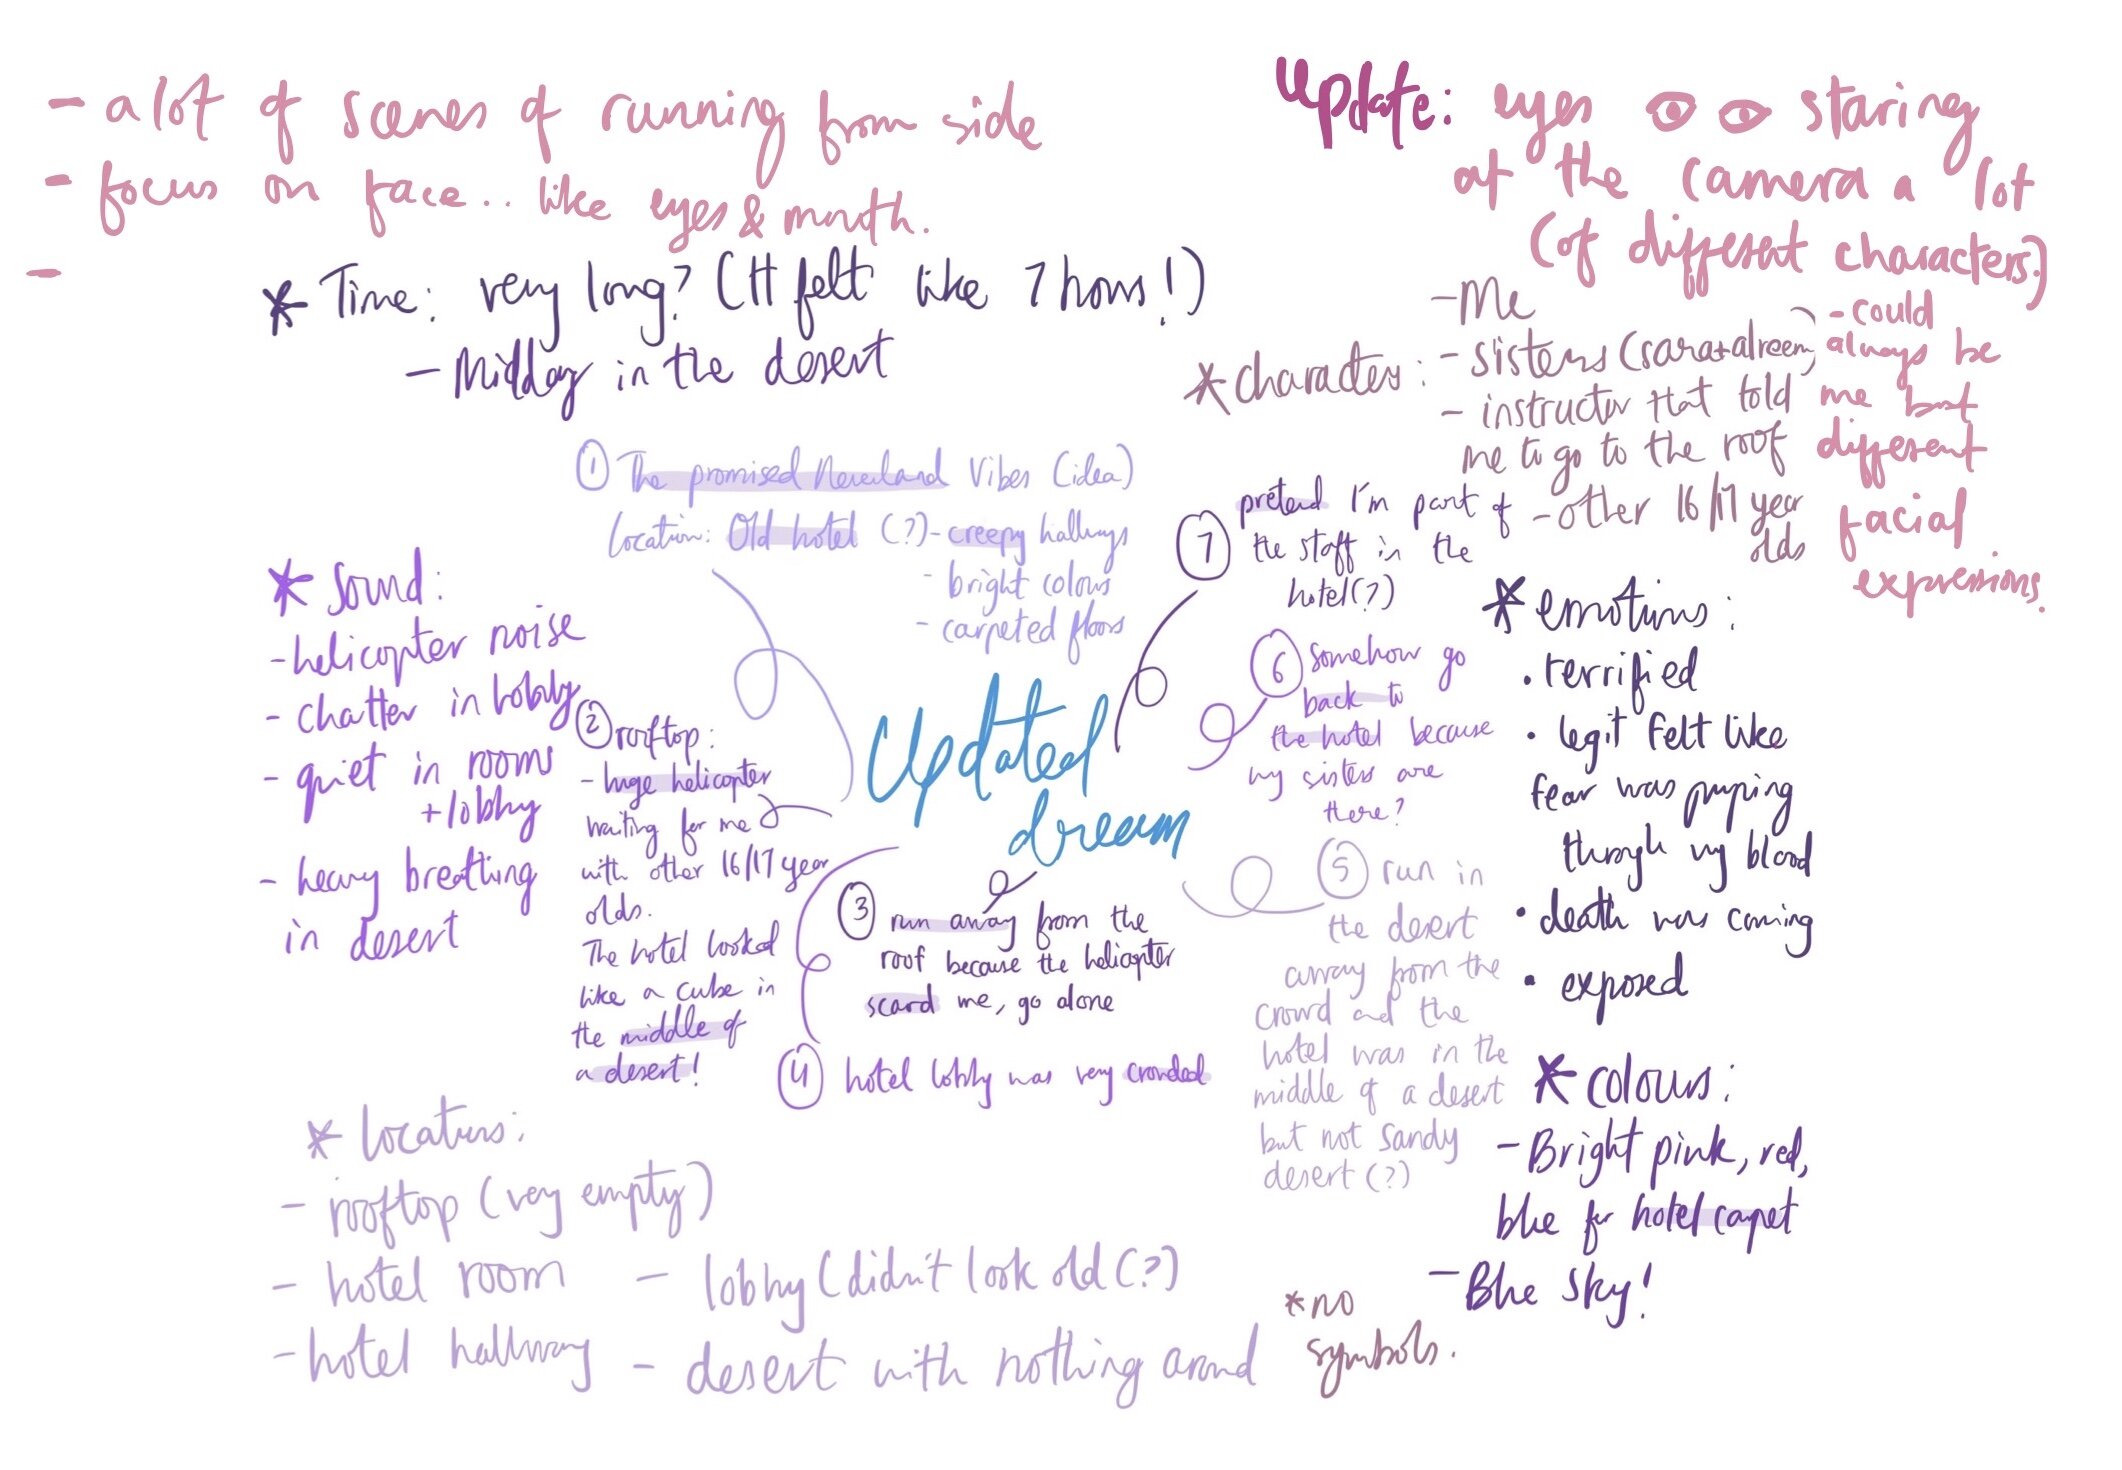 - a lot of scenes of running from side
- focus on face.. like eyes & mouth.
-
Update: eyes staring
at the camera a lot
(of different characters.)
* Time: very long? (It felt like 7 hours!)
- Midday in the desert
* characters:
- Me
- sisters (sara+alreem)
- instructor that told
me to go to the roof
- other 16/17 year
olds
- could
always be
me but
different
facial
expressions.
① The promised Neverland Vibes (idea)
location: Old hotel (?) - creepy hallways
- bright colours
- carpeted floors
* Sound:
- helicopter noise
- chatter in lobby
- quiet in rooms
+ lobby
- heavy breathing
in desert
② rooftop:
- huge helicopter
waiting for me
with other 16/17 year
olds.
The hotel looked
like a cube in
the middle of
a desert!
Updated
dream
③ run away from the
roof because the helicopter
scard me, go alone
④ hotel lobby was very crowded
⑤ run in
the desert
away from the
crowd and the
hotel was in the
middle of a desert
but not sandy
desert (?)
⑥ somehow go
back to
the hotel because
my sisters are
there?
⑦ pretend I'm part of
the staff in the
hotel (?)
* emotions:
• terrified
• legit felt like
fear was pumping
through my blood
• death was coming
• exposed
* colours:
- Bright pink, red,
blue for hotel carpet
- Blue sky!
* locations:
- rooftop (very empty)
- hotel room
- hotel hallway
- lobby (didn't look old (?)
- desert with nothing around
* no
symbols.